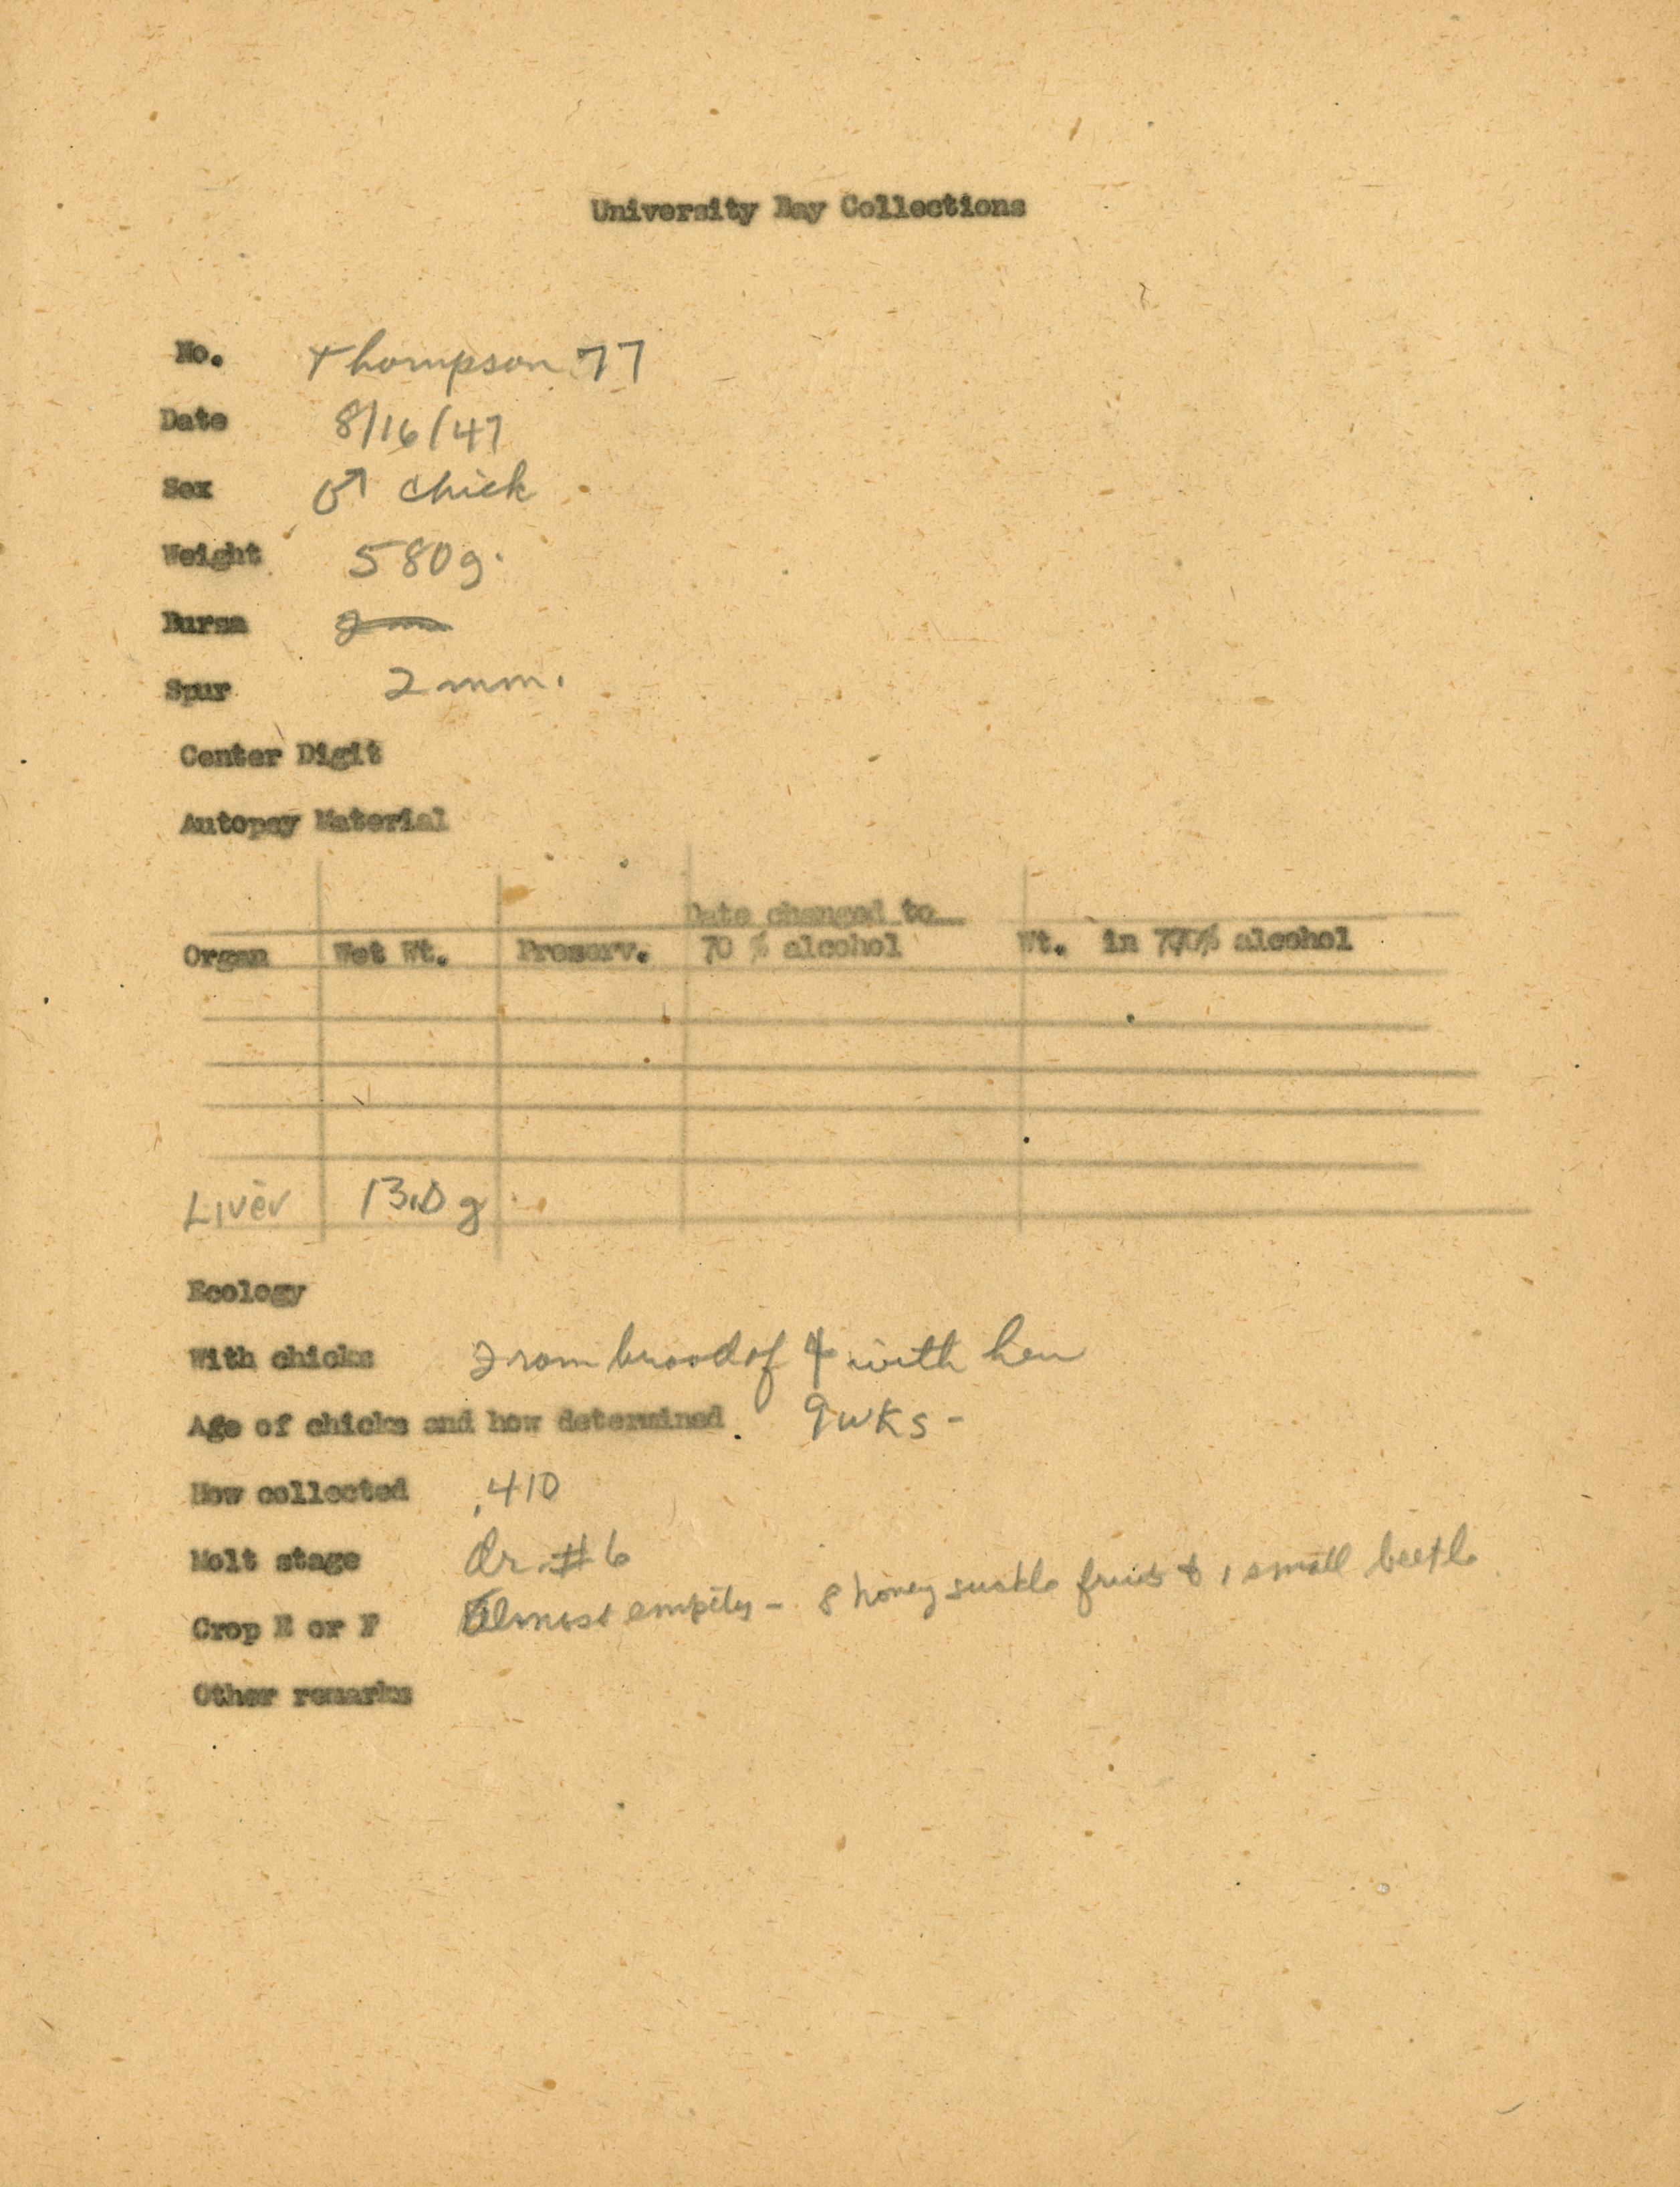 University Bay Collections
No. Thompson 77
Date 8/16/47
Sex ♂ chick
Weight 580g.
Bursa
Spur 2 mm.
Center Digit
Autopsy Material
Date changed to
Organ Wet Wt. Preserv. 70 % alcohol Wt. in 70% alcohol
Liver 13.0 g
Ecology
With chicks From brood of 4 with hen
Age of chicks and how determined 9 wks -
How collected .410
Molt stage #6
Crop E or F Almost empty - 8 honey suckle fruits & 1 small beetle
Other remarks